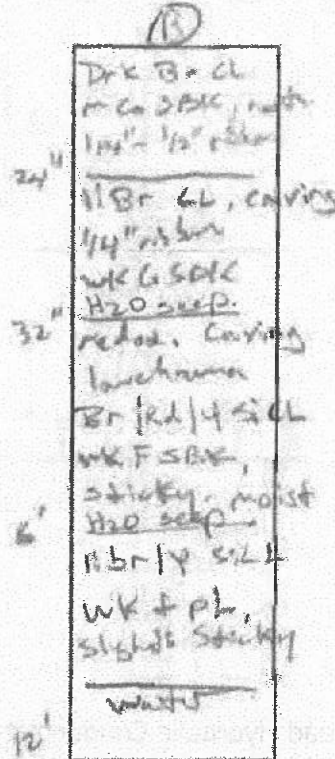 B
Drk Br CL
m Co SBK,
1/2"
24"
Br CL, caving
1/4" ribbon
wK G SBK
H2O seep.
32"
redox. Caving
low chroma
Br/Rd/Y SiCL
wK F SBK,
sticky. moist
6'
H2O seep.
br/y SiCL
wK f pl,
slight Sticky
water
12'